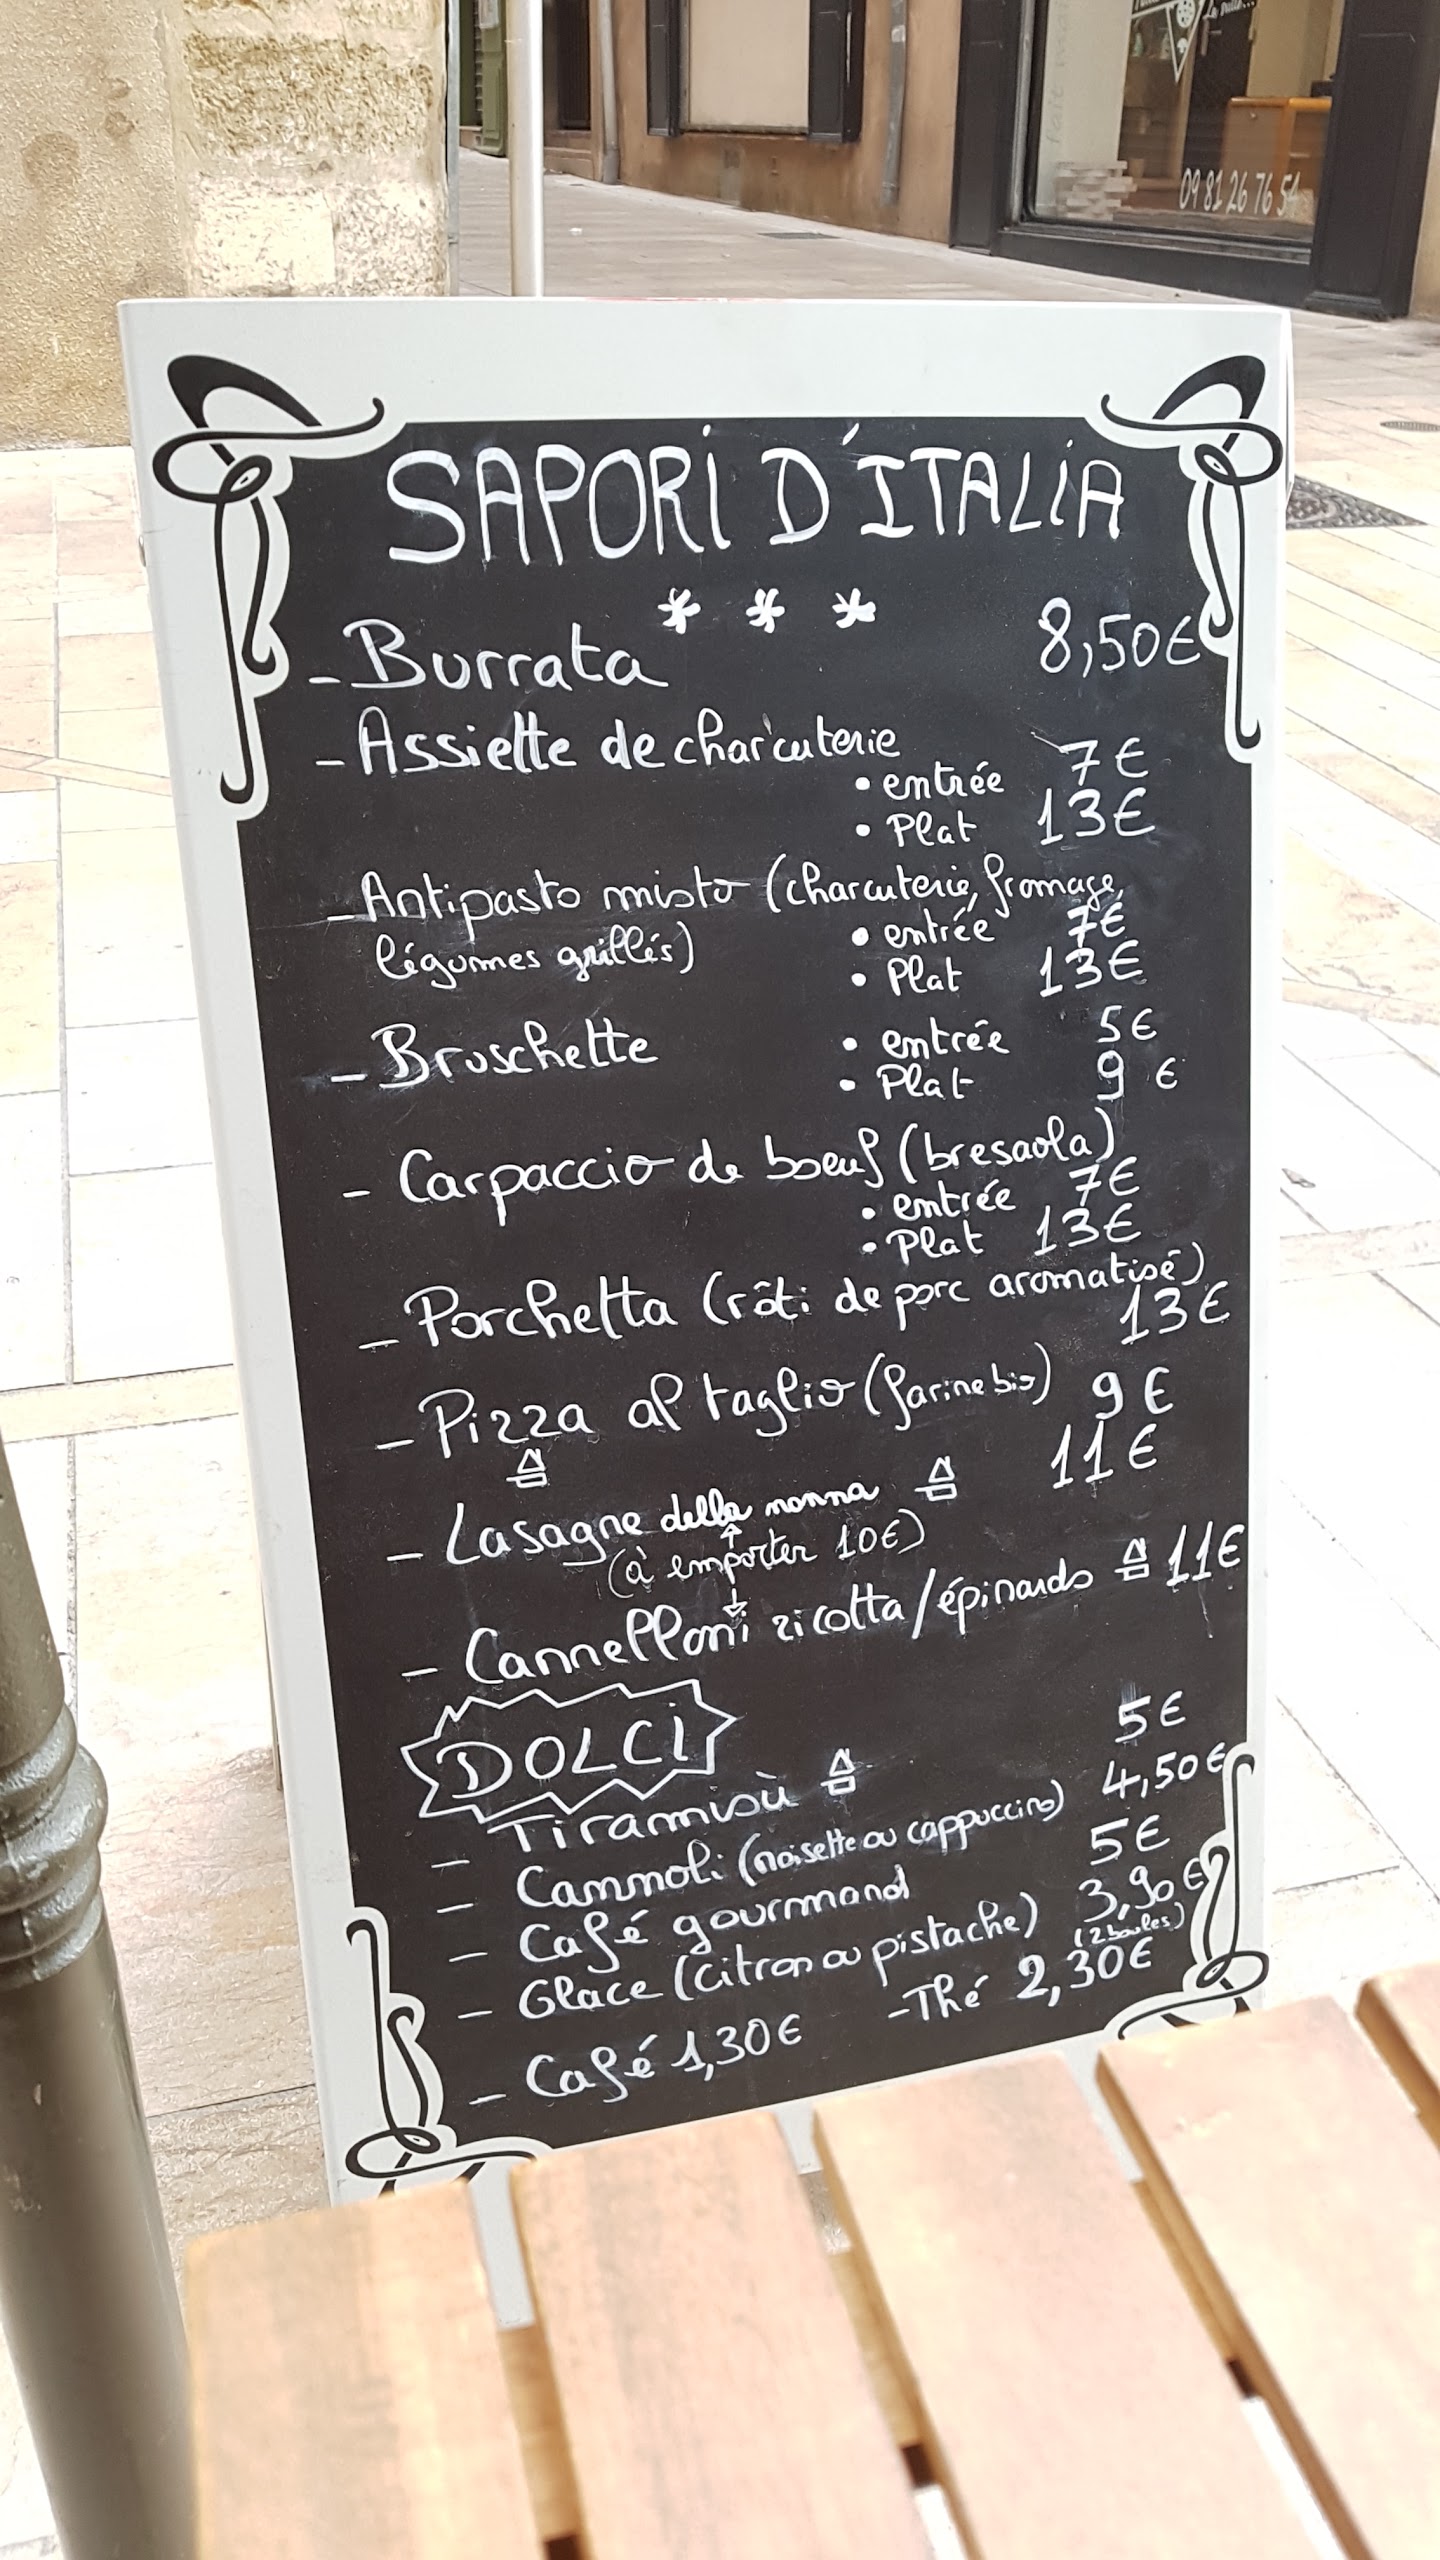 La Salle...
09 81 26 76 54
SAPORI D'ITALIA
***
- Burrata 8,50€
- Assiette de charcuterie
• entrée 7€
• Plat 13€
- Antipasto misto (charcuterie, fromage,
légumes grillés) • entrée 7€
• Plat 13€
- Bruschette • entrée 5€
• Plat 9€
- Carpaccio de boeuf (bresaola)
• entrée 7€
• Plat 13€
- Porchetta (rôti de porc aromatisé)
13€
- Pizza al taglio (farine bio) 9€
- Lasagne della nonna 11€
(à emporter 10€)
- Cannelloni ricotta/épinards 11€
DOLCI
- Tiramisù 5€
- Cannoli (noisette ou cappuccino) 4,50€
- Café gourmand 5€
- Glace (citron ou pistache) 3,90€
(2 boules)
- Café 1,30€ - Thé 2,30€